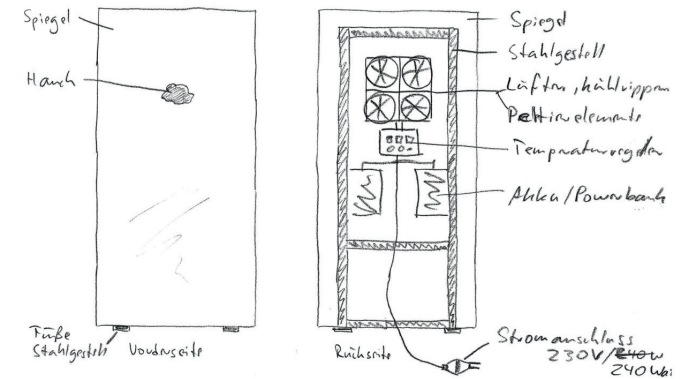 Spiegel
Hauch
Füße
Stahlgestell
Vorderseite
Spiegel
Stahlgestell
Lüfter, Kühlrippen
Peltierelemente
Temperaturregler
Akku/Powerbank
Rückseite
Stromanschluss
230V/240W
240